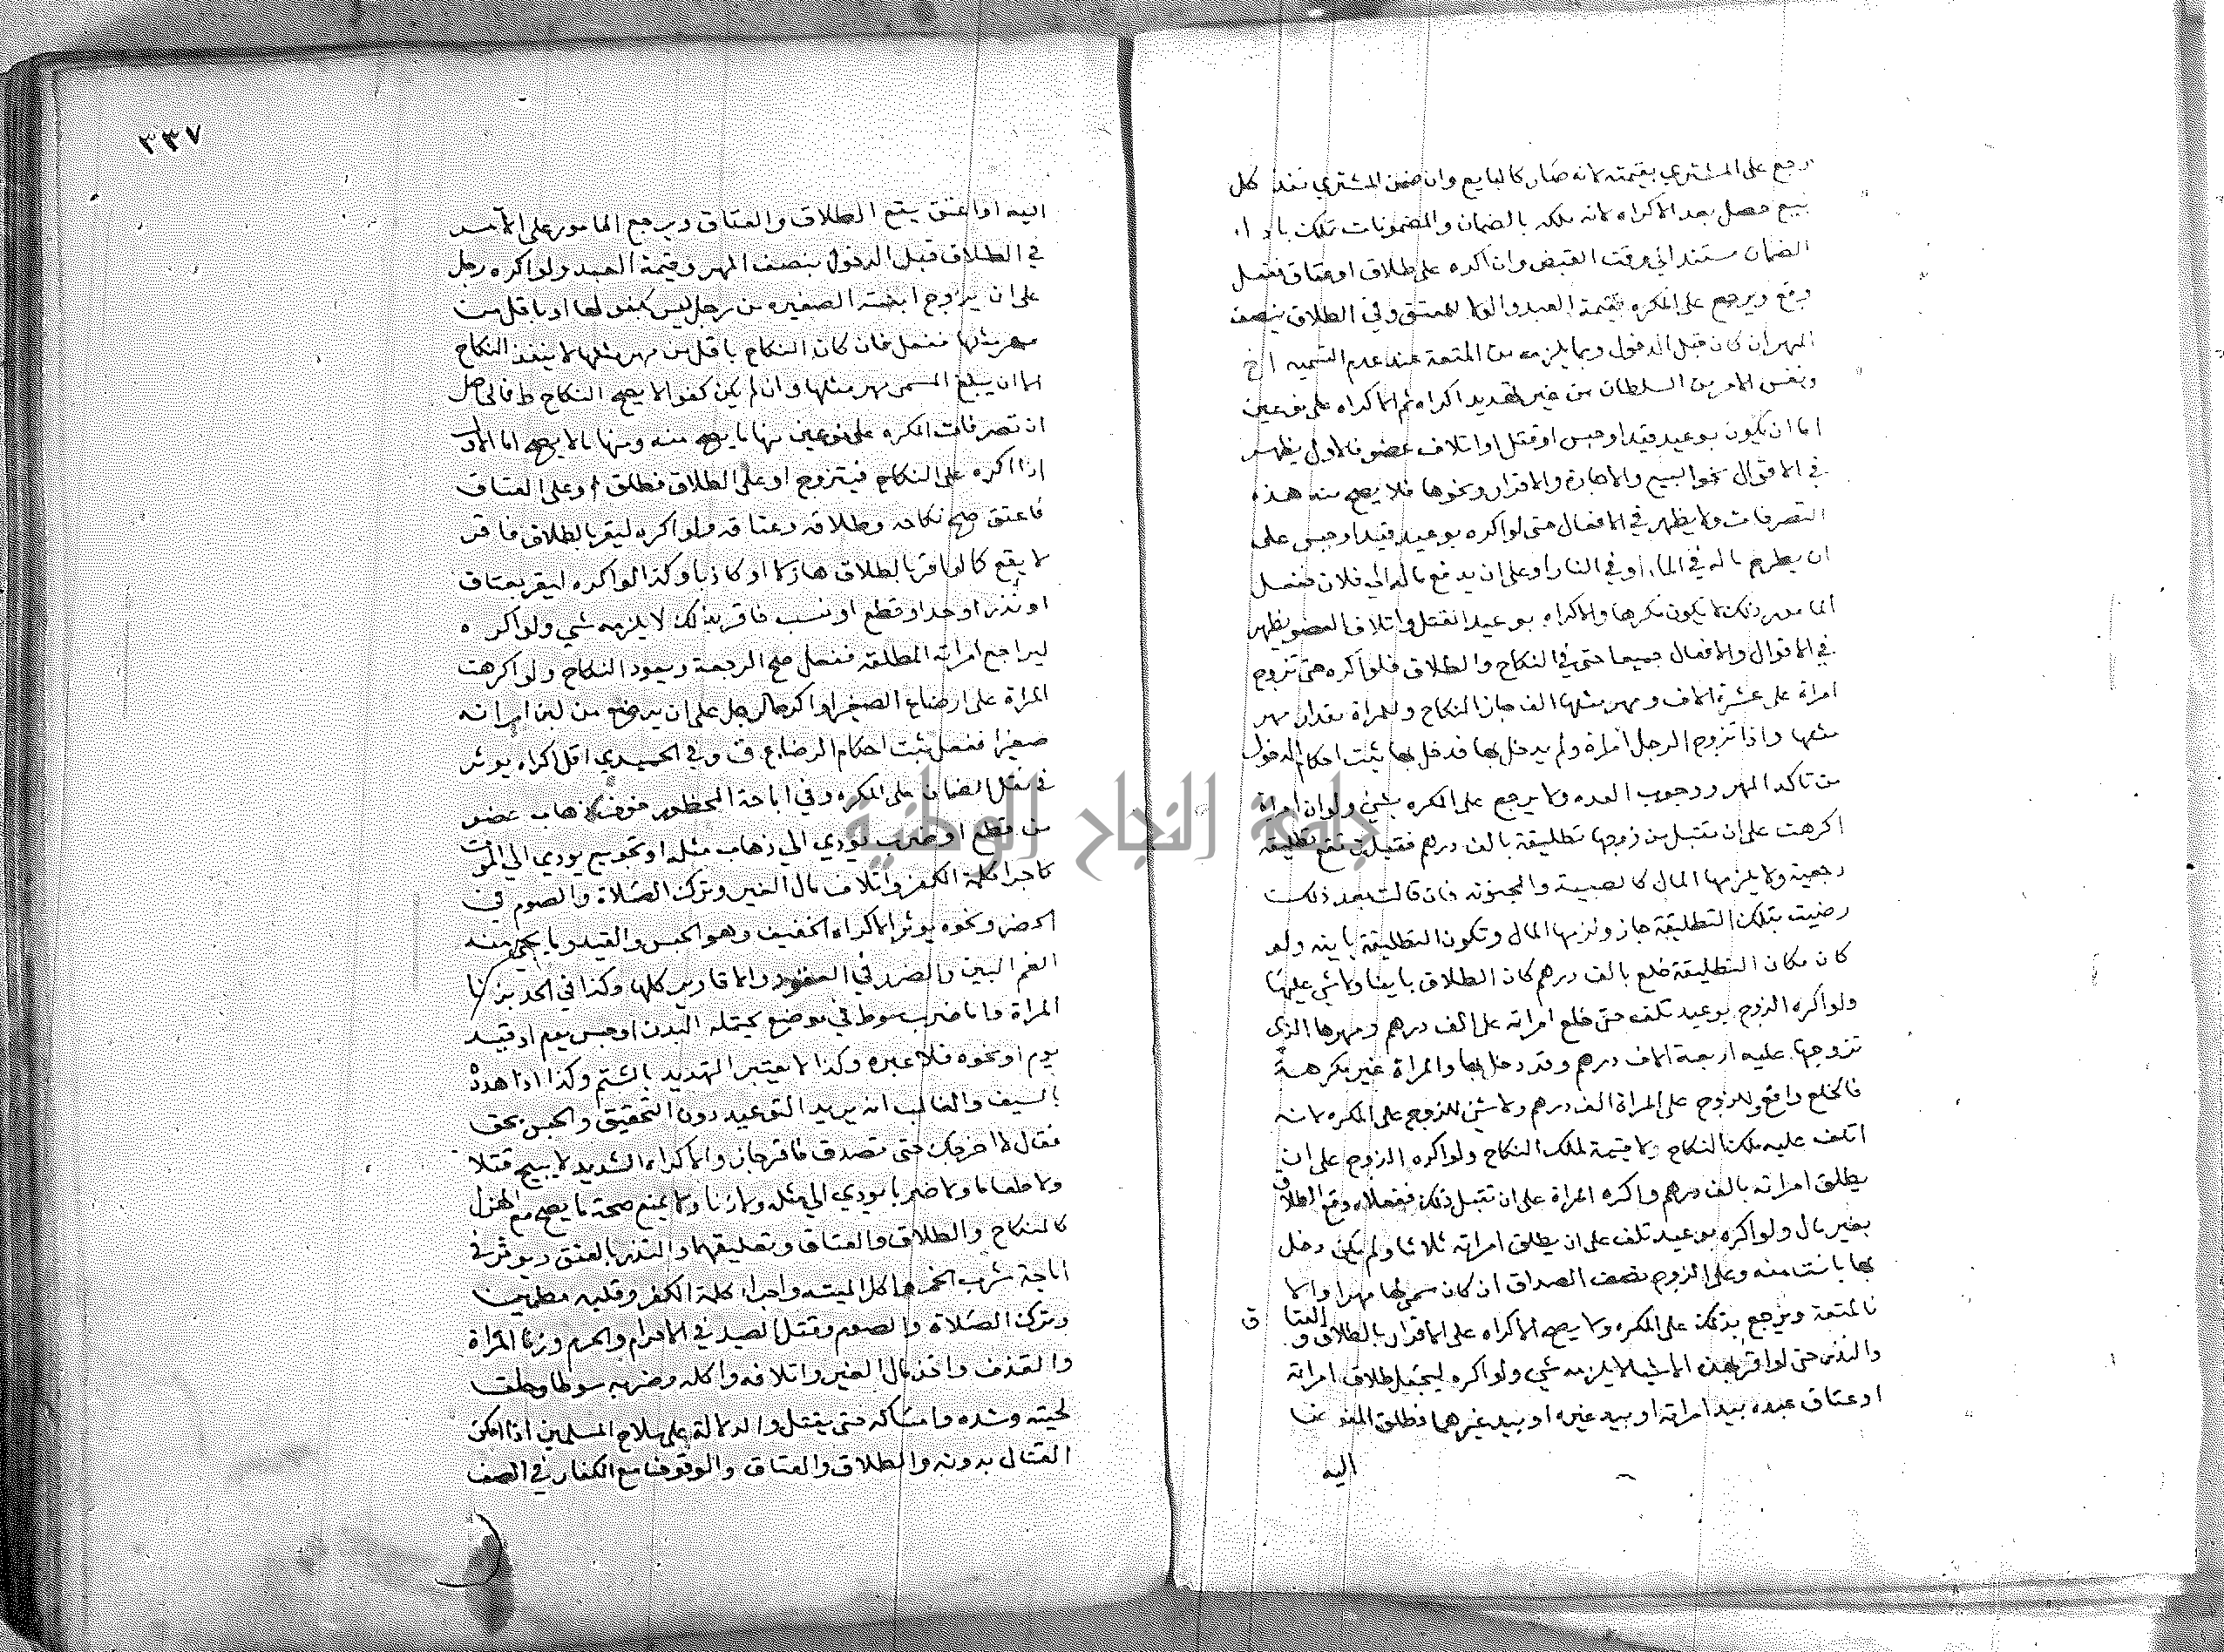 رجع على المشتري بقيمته لانه صار كالبايع وان ضمن المشتري نفذ كل
بيع حصل بعد الاكراه لانه ملكه بالضمان والمضمونات تملك باداء
الضمان مستندا الى وقت القبض وان اكره على طلاق او عتاق ففعل
وقع ويرجع على المكره بقيمة العبد والولا للمعتق وفي الطلاق بنصف
المهر ان كان قبل الدخول وبما يلزمه من المتعة عند عدم التسميه الخ
ونفس الامر من السلطان من غير تهديد اكراه ثم الاكراه على نوعين
اما ان يكون بوعيد قيد او حبس او قتل او اتلاف عضو فالاول يظهر
في الاقوال نحو البيع والاجارة والاقرار ونحوها فلا يصح منه هذه
التصرفات ولا يظهر في الافعال حتى لو اكره بوعيد قيد او حبس على
ان يطرح ماله في الماء او في النار او على ان يدفع ماله الى فلان ففعل
المامور ذلك لا يكون مكرها والاكراه بوعيد القتل واتلاف العضو يظهر
في الاقوال والافعال جميعا حتى في النكاح والطلاق فلو اكره حتى تزوج
امراة على عشرة الاف ومهر مثلها الف جاز النكاح وللمراة مقدار مهر
مثلها واذا تزوج الرجل امراة ولم يدخل بها فدخل بها يثبت احكام الدخول
من تاكد المهر ووجوب العده ولا يرجع على المكره بشي ولو ان امراة
اكرهت على ان تقبل من زوجها تطليقة بالف درهم فقبلت تقع تطليقة
رجعية ولا يلزمها المال كالصبية والمجنونه فان قالت بعد ذلك
رضيت بتلك التطليقة جاز ولزمها المال وتكون التطليقة باينه ولو
كان مكان التطليقة خلع بالف درهم كان الطلاق باينا ولا شي عليها
ولو اكره الزوج بوعيد تلف حتى خلع امراته على الف درهم ومهرها الذي
تزوجها عليه اربعة الاف درهم وقد دخل بها والمراة غير مكرهة
فالخلع واقع وللزوج على المراة الف درهم ولا شي للزوج على المكره لانه
اتلف عليه ملك النكاح ولا قيمة لملك النكاح ولو اكره الزوج على ان
يطلق امراته بالف درهم واكره المراة على ان تقبل ذلك ففعلا وقع الطلاق
بغير مال ولو اكره بوعيد تلف على ان يطلق امراته ثلاثا ولم يكن دخل
بها بانت منه وعلى الزوج نصف الصداق ان كان سمى لها مهرا والا
فالمتعة ويرجع بذلك على المكره ولا يصح الاكراه على الاقرار بالطلاق والعتاق
والنذر حتى لو اقر بهذه الاشيا لا يلزمه شي ولو اكره ليجعل طلاق امراته
او عتاق عبده بيد امراته او بيد عبده او بيد غيرهما فطلق المفوض
اليه
٣٣٧
اليه او اعتق يقع الطلاق والعتاق ويرجع المامور على الامر
في الطلاق قبل الدخول بنصف المهر وقيمة العبد ولو اكره رجل
على ان يزوج ابنته الصغيره من رجل ليس كفو لها او باقل من
مهر مثلها ففعل فان كان النكاح باقل من مهر مثلها لا ينفذ النكاح
الا ان يبلغ المسمى مهر مثلها وان لم يكن كفوا لا يصح النكاح ط فالحاصل
ان تصرفات المكره على نوعين منها ما يصح منه ومنها ما لا يصح اما الاول
اذا اكره على النكاح فيتزوج او على الطلاق فطلق او على العتاق
فاعتق صح نكاحه وطلاقه وعتاقه ولو اكره ليقر بالطلاق فاقر
لا يقع كما لو اقر بالطلاق هازلا او كاذبا وكذا لو اكره ليقر بعتاق
او نذر او حد او قطع او نسب فاقر بذلك لا يلزمه شي ولو اكره
ليراجع امراته المطلقه ففعل صح الرجعة ويعود النكاح ولو اكرهت
المراة على ارضاع الصغير او اكره الرجل على ان يرضع من لبن امراته
صغيرا ففعل يثبت احكام الرضاع ق وفي الحميدي اقل اكراه يوثر
في نقل الضمان على المكره وفي اباحة المحظور خوف ذهاب عضو
من قطع او ضرب يودي الى ذهاب مثله او تجويع يودي الى الموت
كاجرا كلمة الكفر واتلاف مال الغير وترك الصلاة والصوم في
الحضر ونحوه يوثر الاكراه الخفيف وهو الحبس والقيد وما يجي منه
الغم البين والضرر في العقود والاقارير كلها وكذا في الحد بزنا
المراة واما ضرب سوط في موضع يحتمله البدن او حبس يوم او قيد
يوم او نحوه فلا عبره وكذا لا يعتبر التهديد بالشتم وكذا اذا هدد
بالسيف والغالب انه يريد التوعيد دون التحقيق والحبس بحق
فقال لا اخرجك حتى تصدق فاقر جاز والاكراه الشديد لا يبيح قتلا
ولا قطعا ولا ضربا يودي الى مثله ولا زنا ولا يمنع صحة ما يصح مع الهزل
كالنكاح والطلاق والعتاق وتعليقهما والنذر بالعتق ويوثر في
اباحة شرب الخمر واكل الميته واجراء كلمة الكفر وقلبه مطمين
وترك الصلاة والصوم وقتل الصيد في الاحرام والحرم وزنا المراة
والقذف واخذ مال الغير واتلافه واكله وضربه سوطا وحلق
لحيته وشده وامساكه حتى يقتل والدلالة على سلاح المسلمين اذا امكن
القتال بدونه والطلاق والعتاق والوقوف مع الكفار في الصف
جامعة النجاح الوطنية